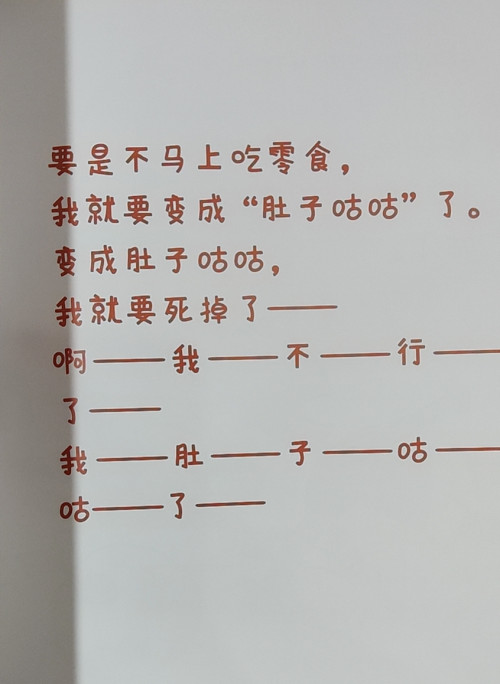 要是不马上吃零食，
我就要变成“肚子咕咕”了。
变成肚子咕咕，
我就要死掉了——
啊——我——不——行——
了——
我——肚——子——咕——
咕——了——